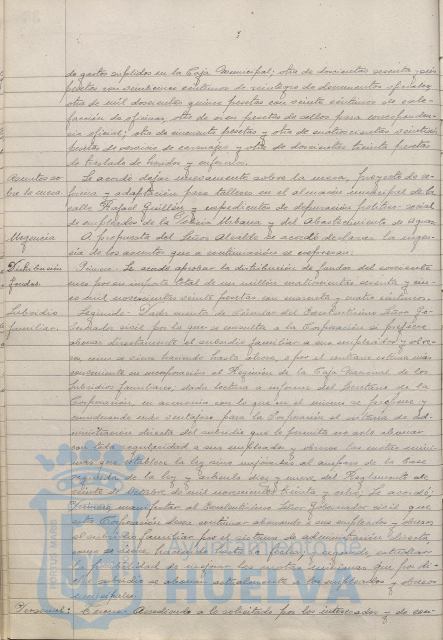 de gastos suplidos en la Caja Municipal; otra de doscientas sesenta y seis
pesetas con setenta céntimos de reintegro de documentos oficiales;
otra de mil doscientas quince pesetas con veinte céntimos de cale-
facción de oficinas, otra de cien pesetas de sellos para corresponden-
cia oficial; otra de cincuenta pesetas y otra de cuatrocientas
pesetas de servicio de carruajes y otra de doscientas treinta pesetas
de traslado de heridos y enfermos.
Asuntos so-
bre la mesa.
Se acordó dejar nuevamente sobre la mesa, proyecto de re-
forma y adaptación para talleres en el almacén municipal de la
calle Rafael Guillén y expedientes de depuración político-social
de empleados de la Policía Urbana y del Abastecimiento de aguas
Urgencia
A propuesta del Señor Alcalde se acordó declarar la urgen-
cia de los asuntos que a continuación se expresan:
Distribución
fondos.
Primero: Se acordó aprobar la distribución de fondos del corriente
mes por su importe total de un millón cuatrocientas setenta y
mil novecientas veinte pesetas con cuarenta y cuatro céntimos.
Subsidio
familiar.
Segundo: Dada cuenta de Circular del Excelentísimo Señor Go-
bernador civil por la que se consulta a la Corporación si prefiere
abonar directamente el subsidio familiar a sus empleados y obre-
ros, como se viene haciendo hasta ahora, o por el contrario estima más
conveniente su incorporación al Régimen de la Caja Nacional de los
Subsidios familiares, dada lectura a informe del Secretario de la
Corporación, en armonía con lo que en el mismo se propone y
considerando más ventajoso para la Corporación el sistema de ad-
ministración directa del subsidio que le permite no solo abonar
con toda regularidad a sus empleados y obreros las cuotas míni-
mas que establece la ley sino mejorarlas al amparo de la base
segunda de la ley y artículo diez y nueve del Reglamento de
veinte de Octubre de mil novecientos treinta y ocho, Se acordó:
Primero, manifestar al Excelentísimo Señor Gobernador civil que
esta Corporación desea continuar abonando a sus empleados y obreros
el subsidio familiar por el sistema de administración directa
como se viene haciendo hasta la fecha; y segundo estudiar
la posibilidad de mejorar las cuotas mínimas que por di-
cho subsidio se abonan actualmente a los empleados y obreros
municipales.
Personal:
Tercero: Accediendo a lo solicitado por los interesados y de con-
PORTUS MARIS
Ayuntamiento de
HUELVA